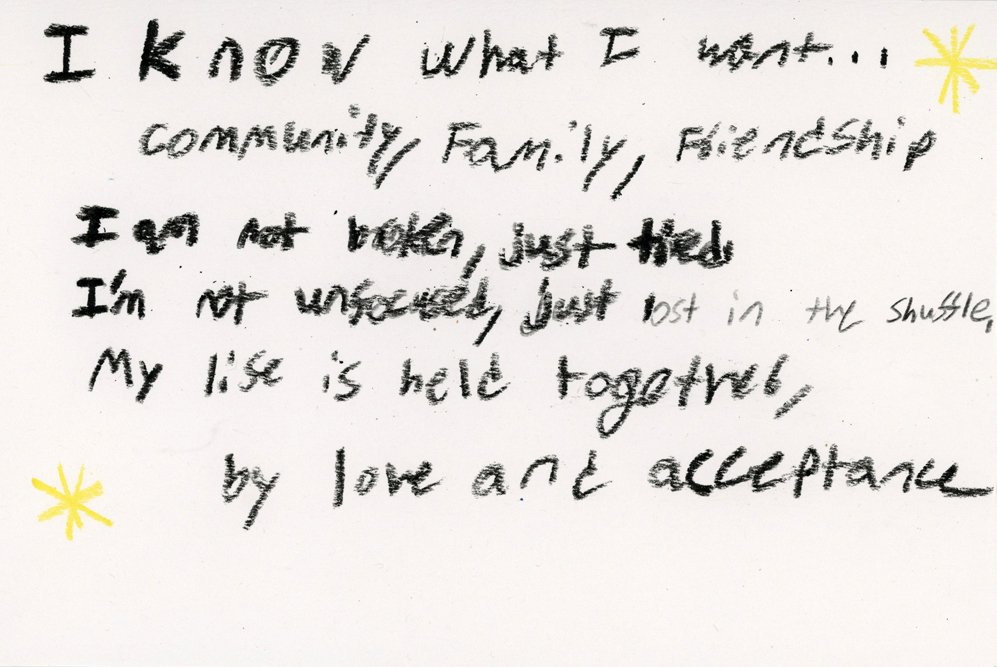 I know what I want...
Community, Family, Friendship
I am not broken, just tied.
I'm not unfocused, just lost in the shuffle,
My life is held together,
by love and acceptance